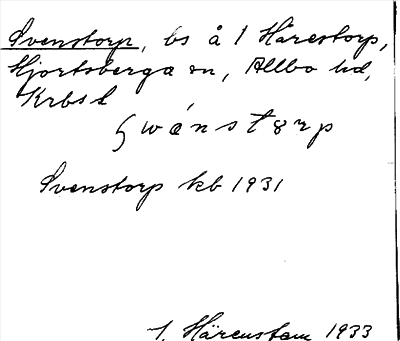 Svenstorp, bs å 1 Hårestorp,
Hjortsberga sn, Allbo hd,
Krbs l
swänstörp
Svenstorp kb 1931
Härenstam 1933